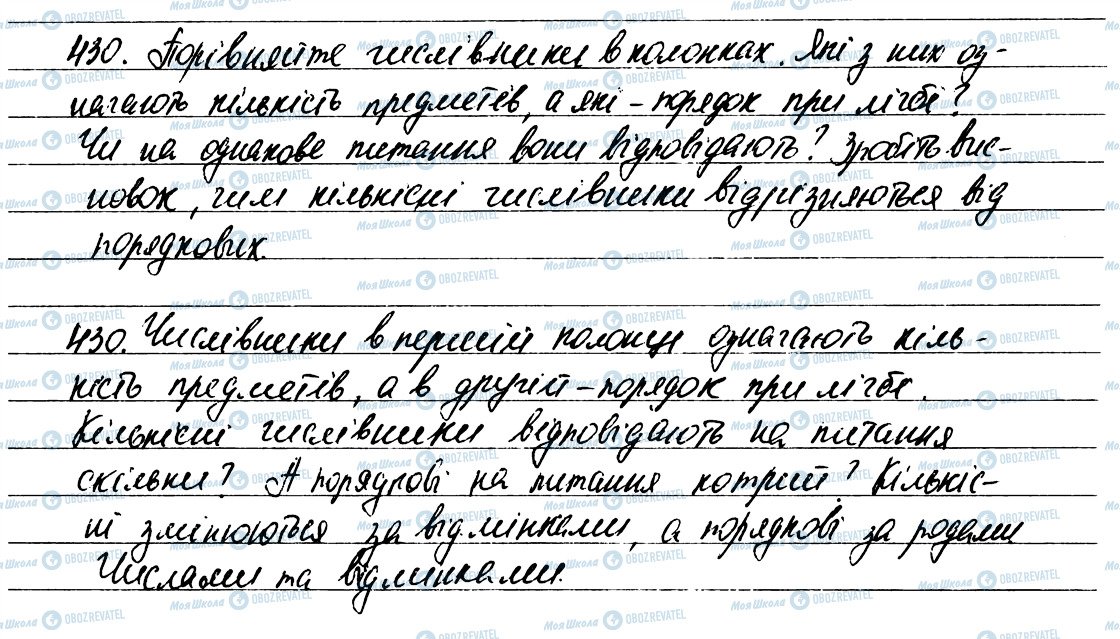 430. Порівняйте числівники в колонках. Які з них оз-
начають кількість предметів, а які - порядок при лічбі?
Чи на однакове питання вони відповідають? Зробіть вис-
новок, чим кількісні числівники відрізняються від
порядкових.
430. Числівники в першій колонці означають кіль-
кість предметів, а в другій - порядок при лічбі.
Кількісні числівники відповідають на питання
скільки? А порядкові на питання котрий? Кількіс-
ні змінюються за відмінками, а порядкові за родами
Числами та відмінками.